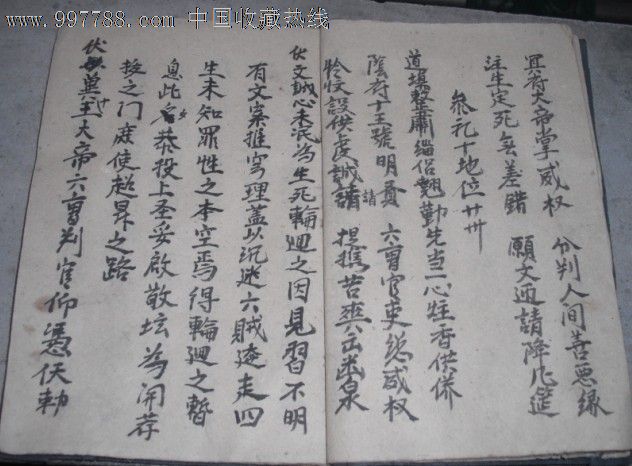 www.997788.com 中国收藏热线
冥府大帝掌威权 分判人间善恶缘
注生定死无差错 願文迎請降凡筵
叅礼十地位卄卌
道場整肅缁侣翹勤先当一心炷香供俻
陰府十王號明貴 請 六曹官吏総威权
聆忮設供虔誠請 提携苦爽出迷泉
伏文誠心未泯為生死輪廻之因見習不明
有文案推穷理蓋以沉迷六賊逩走四
生未知罪性之本空焉得輪廻之暫
息此者恭投上圣妥啟敬坛為開荐
拔之门庶使超昇之路
伏 冥王大帝六曹判官仰憑佛勅